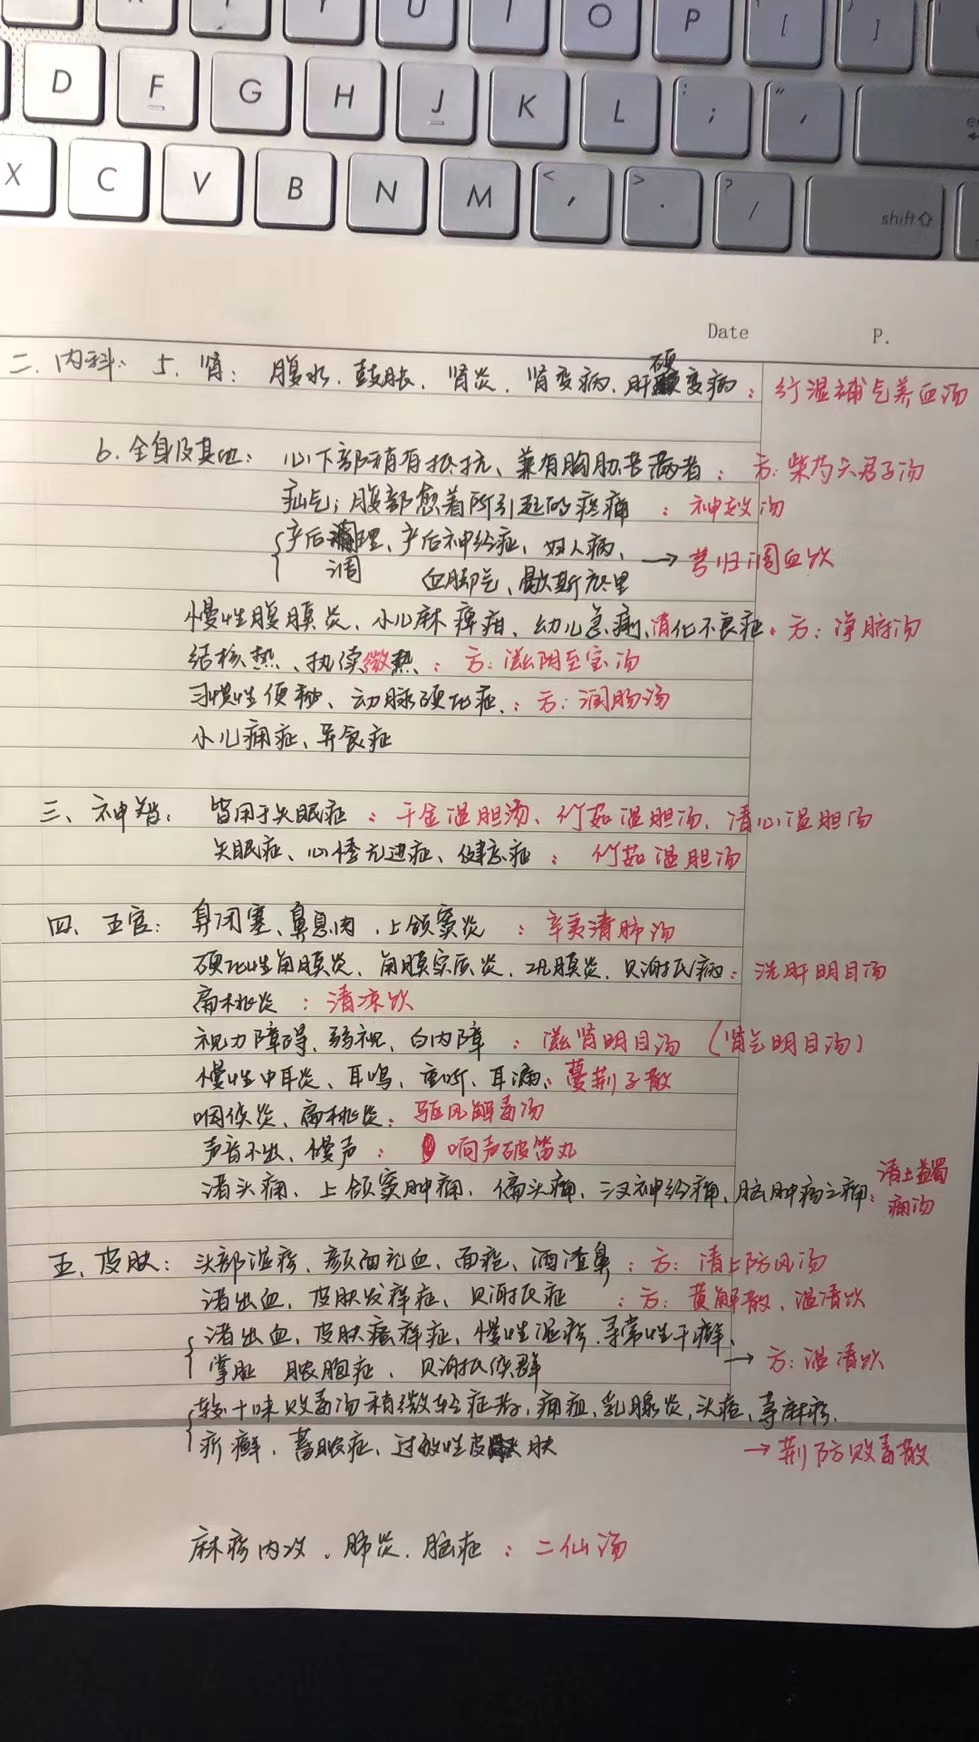 T Y U I O P [ ]
D F G H J K L : ; " '
X C V B N M < , > . ? / shift
Date P.
二、内科: 5. 肾: 腹水、鼓胀、肾炎、肾变病、肝硬变病: 行湿补气养血汤
6. 全身及其他: 心下部稍有抵抗、兼有胸胁苦满者: 方: 柴芍六君子汤
疝气; 腹部 所引起的疼痛: 神效汤
产后调理、产后神经症、妇人病、 → 芎归调血饮
血脚气、歇斯底里
慢性腹膜炎、小儿麻痺疳、幼儿急痢、消化不良症。方: 净腑汤
结核热、执续微热: 方: 滋阴至宝汤
习惯性便秘、动脉硬化症: 方: 润肠汤
小儿疳症、异食症
三、神智: 皆用于失眠症: 千金温胆汤、竹茹温胆汤、清心温胆汤
失眠症、心悸亢进症、健忘症: 竹茹温胆汤
四、五官: 鼻闭塞、鼻息肉、上颌窦炎: 辛夷清肺汤
硬化性角膜炎、角膜实质炎、巩膜炎、贝谢氏病: 洗肝明目汤
扁桃炎: 清凉饮
视力障碍、弱视、白内障: 滋肾明目汤 (肾气明目汤)
慢性中耳炎、耳鸣、重听、耳漏: 蔓荆子散
咽侯炎、扁桃炎: 驱风解毒汤
声音不出、 声: 响声破笛丸
诸头痛、上颌窦肿痛、偏头痛、三叉神经痛、脑肿疡之痛: 清上蠲痛汤
五、皮肤: 头部湿疹、颜面充血、面疱、酒渣鼻: 方: 清上防风汤
诸出血、皮肤发痒症、贝谢氏症: 方: 黄解散、温清饮
诸出血、皮肤瘙痒症、慢性湿疹、寻常性干癣、
掌趾 脓胞症、贝谢氏侯群 → 方: 温清饮
较十味败毒汤稍微轻症者, 痈疽、乳腺炎、头疮、荨麻疹、
疥癣、蓄脓症、过敏性皮肤 → 荆防败毒散
麻疹内攻、肺炎、脑症: 二仙汤